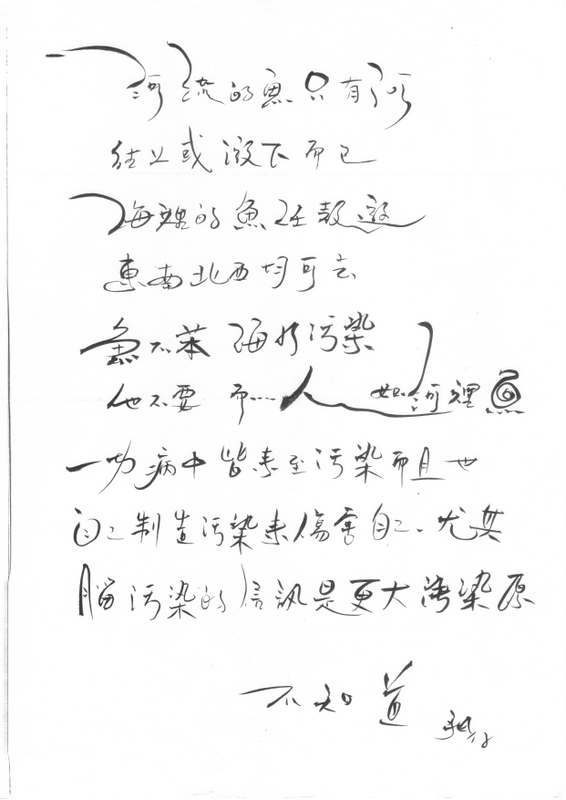 河流的魚只有河
往上或游下而已
海裡的魚任敖遊
東南北西均可去
魚不笨 海水污染
他不要 而…人 如河裡魚
一切病中皆來至污染而且也
自己制造污染來傷害自己、尤其
腦污染的信訊是更大污染原
不知道